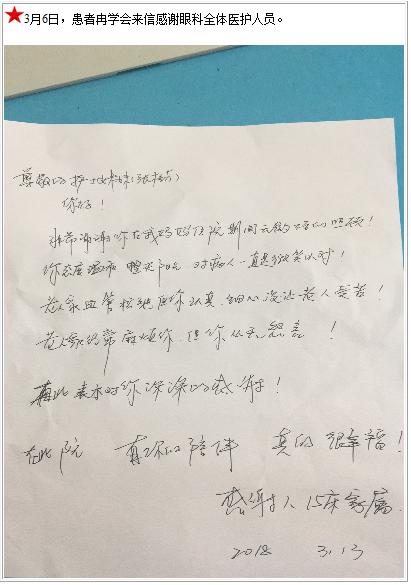 ★3月6日，患者冉学会来信感谢眼科全体医护人员。
尊敬的护士
你好！
非常谢谢你在我妈妈住院期间的照顾！
你态度温和 整天阳光 对病人一直是微笑以对！
老人家血管松弛但你认真，细心没让老人受苦！
老人家经常麻烦你，但你从无怨言！
再此表示对你深深的感谢！
在此院 有你的陪伴 真的很幸福！
感谢人 15床家属
2018 3.13